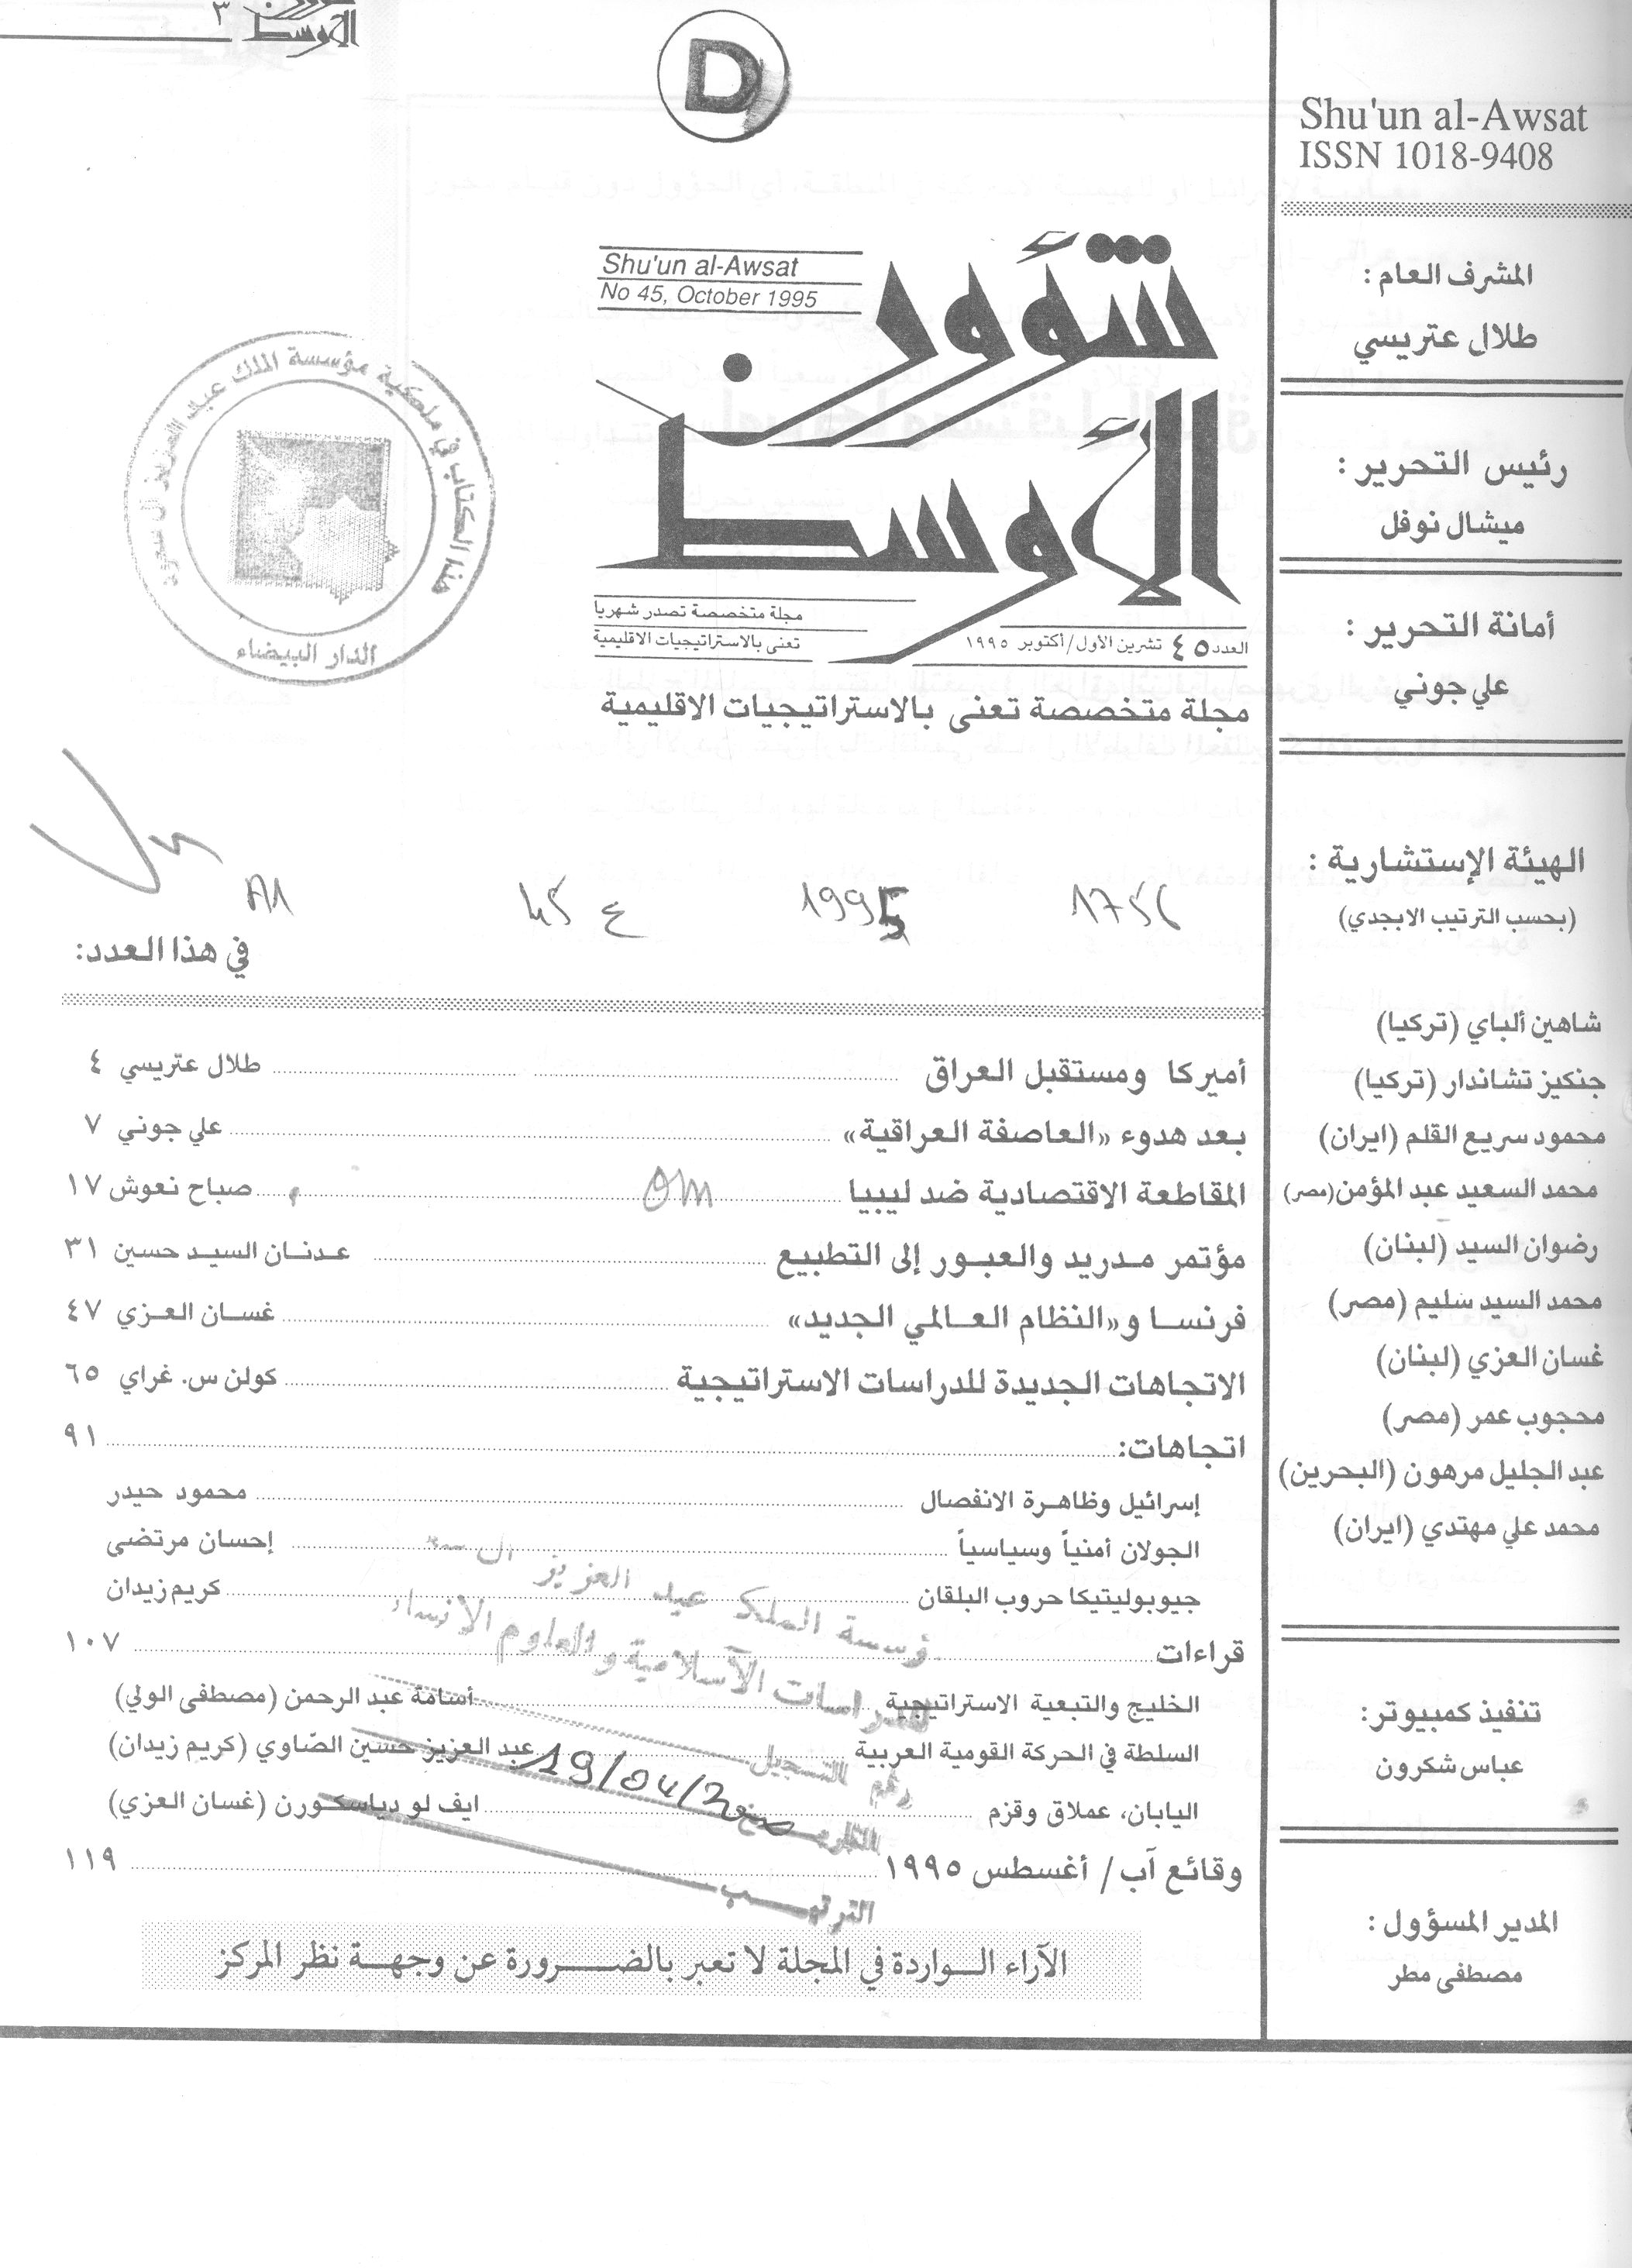 ٣
شؤون
الأوسط
D
Shu'un al-Awsat
ISSN 1018-9408
المشرف العام :
طلال عتريسي
رئيس التحرير :
ميشال نوفل
أمانة التحرير :
علي جوني
الهيئة الإستشارية :
(بحسب الترتيب الابجدي)
شاهين ألباي (تركيا)
جنكيز تشاندار (تركيا)
محمود سريع القلم (ايران)
محمد السعيد عبد المؤمن (مصر)
رضوان السيد (لبنان)
محمد السيد سليم (مصر)
غسان العزي (لبنان)
محجوب عمر (مصر)
عبد الجليل مرهون (البحرين)
محمد علي مهتدي (ايران)
تنفيذ كمبيوتر:
عباس شكرون
المدير المسؤول :
مصطفى مطر
Shu'un al-Awsat
No 45, October 1995
شؤون
الأوسط
مجلة متخصصة تصدر شهريا
تعنى بالاستراتيجيات الاقليمية
العدد ٤٥ تشرين الأول/أكتوبر ١٩٩٥
مجلة متخصصة تعنى بالاستراتيجيات الاقليمية
هذا الكتاب في ملكية مؤسسة الملك عبد العزيز آل سعود
الدار البيضاء
1756 1995 ع 45 A1
في هذا العدد:
أميركا ومستقبل العراق طلال عتريسي ٤
بعد هدوء «العاصفة العراقية» علي جوني ٧
المقاطعة الاقتصادية ضد ليبيا صباح نعوش ١٧
مؤتمر مدريد والعبور إلى التطبيع عدنان السيد حسين ٣١
فرنسا و«النظام العالمي الجديد» غسان العزي ٤٧
الاتجاهات الجديدة للدراسات الاستراتيجية كولن س. غراي ٦٥
اتجاهات: ٩١
إسرائيل وظاهرة الانفصال محمود حيدر
الجولان أمنياً وسياسياً إحسان مرتضى
جيوبوليتيكا حروب البلقان كريم زيدان
قراءات ١٠٧
الخليج والتبعية الاستراتيجية أسامة عبد الرحمن (مصطفى الولي)
السلطة في الحركة القومية العربية عبد العزيز حسين الصّاوي (كريم زيدان)
اليابان، عملاق وقزم ايف لو دياسكورن (غسان العزي)
وقائع آب/ أغسطس ١٩٩٥ ١١٩
ؤسسة الملك عبد العزيز آل
للدراسات الآسلامية والعلوم الانسا
رقم التسجيل
التاريخ 19/04/2000
الترتيب
الآراء الواردة في المجلة لا تعبر بالضرورة عن وجهة نظر المركز